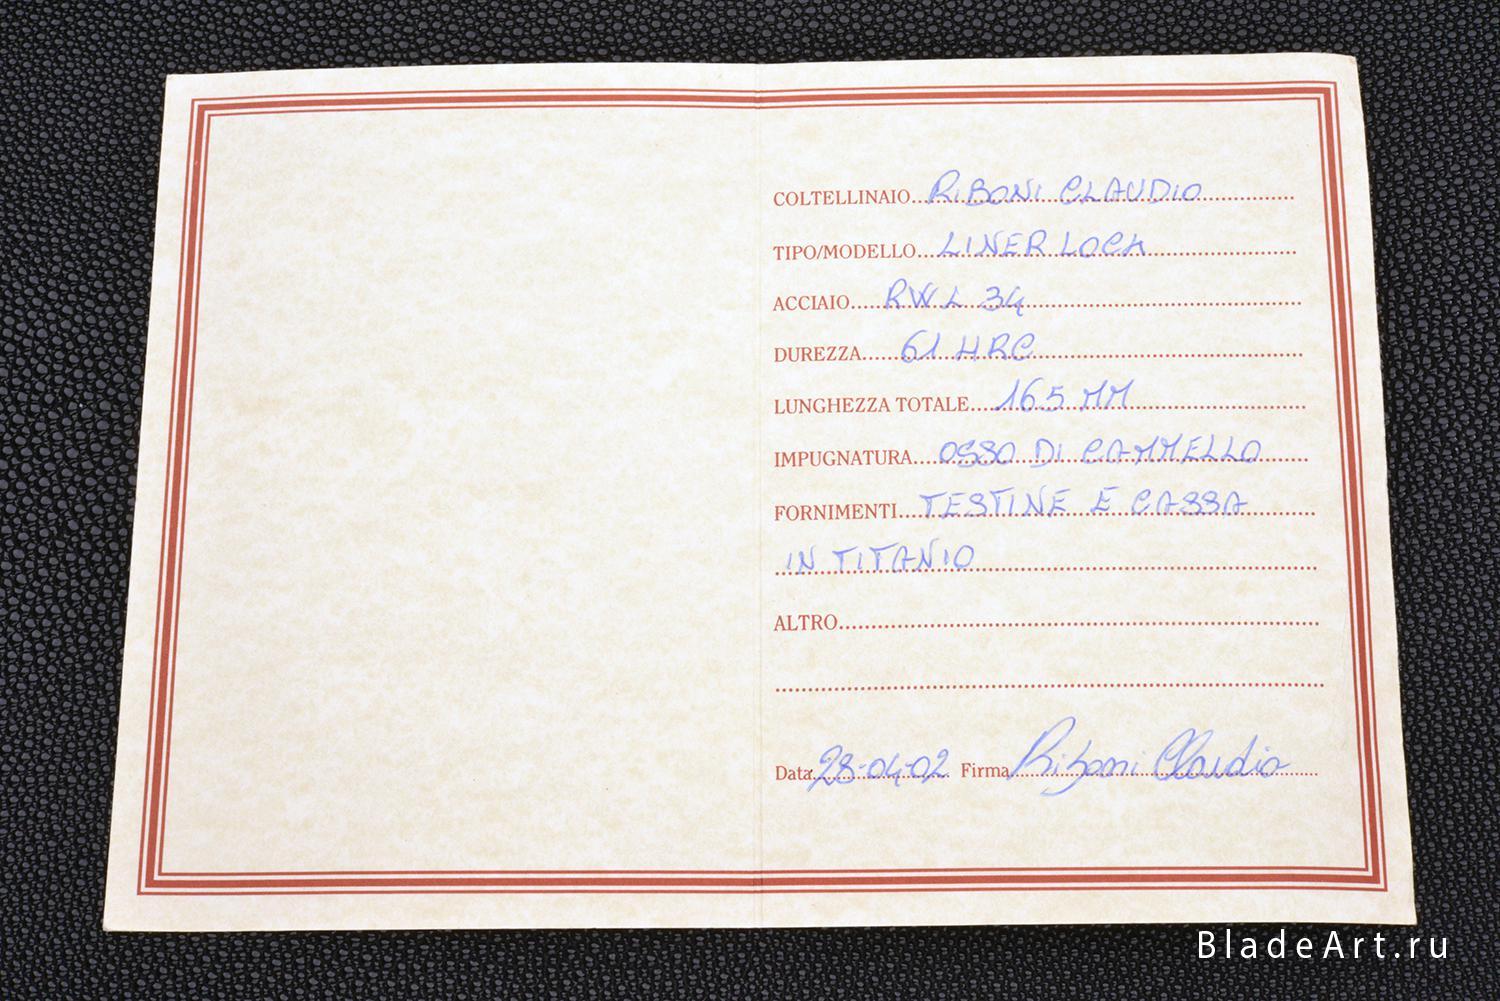 COLTELLINAIO...RIBONI CLAUDIO
TIPO/MODELLO...LINER LOCK
ACCIAIO...RWL 34
DUREZZA...61 HRC
LUNGHEZZA TOTALE...165 MM
IMPUGNATURA...OSSO DI CAMMELLO
FORNIMENTI...TESTINE E CASSA
IN TITANIO
ALTRO...
Data 28-04-02 Firma Riboni Claudio
BladeArt.ru